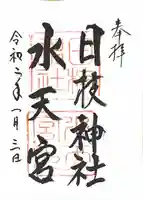 奉拝
日枝神社
水天宮
令和二年一月三日